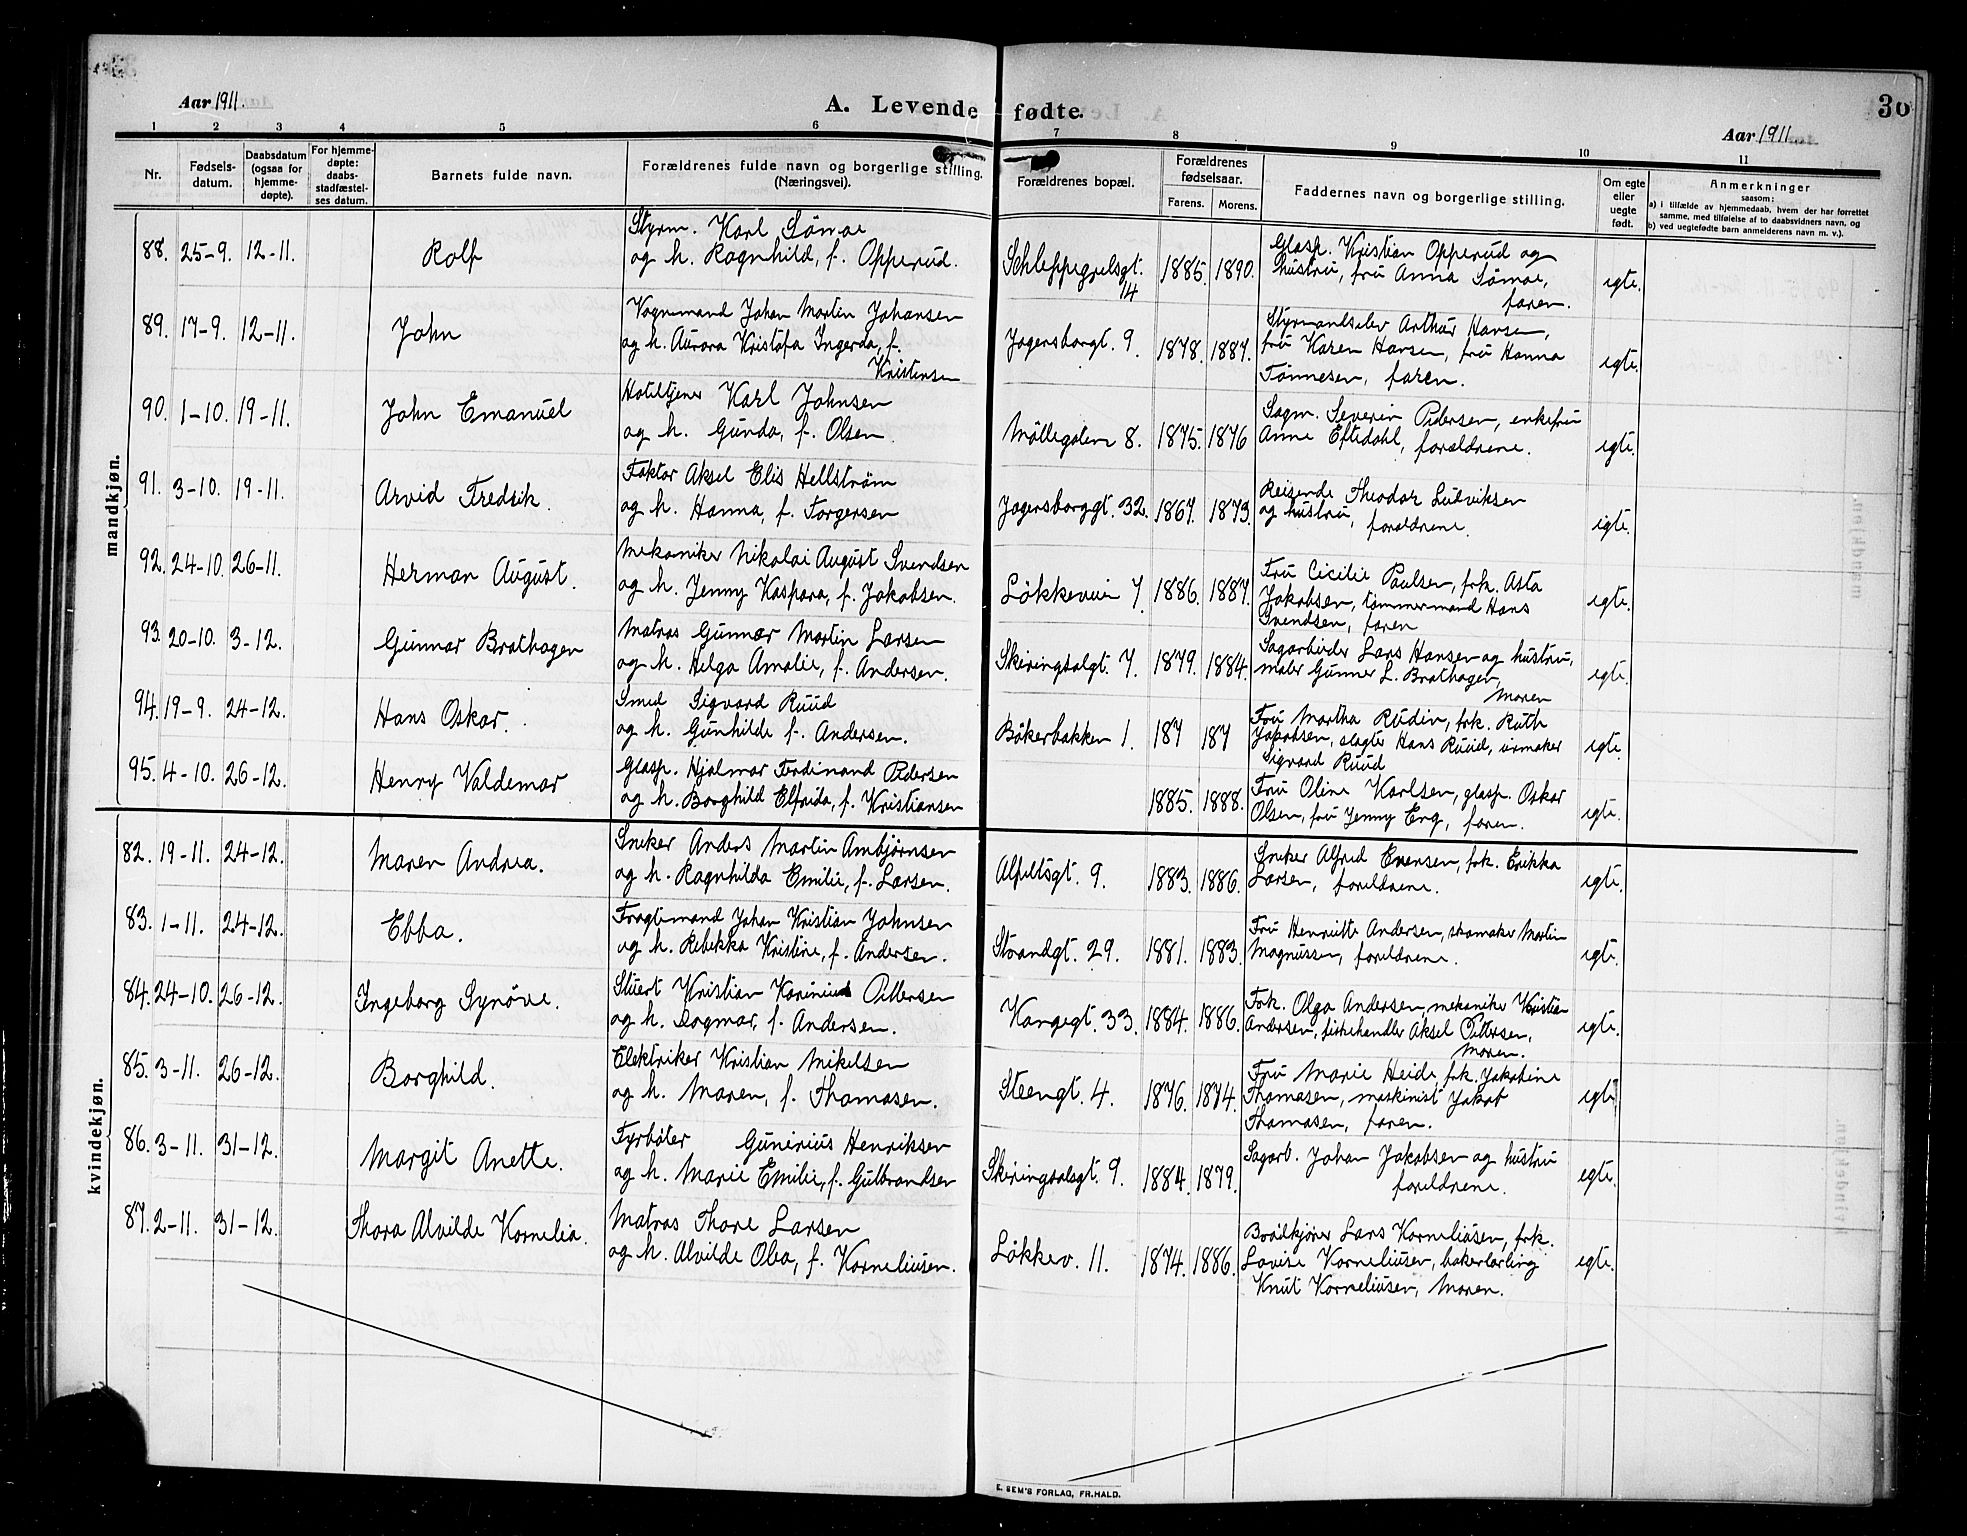 Aar 1911.
A. Levende fødte.
30
Aar 1911
1 2 3 4 5 6 7 8 9 10 11
Nr.
Fødsels-
datum.
Daabsdatum
(ogsaa for
hjemme-
døpte).
For hjemme-
døpte:
daabs-
stadfæstel-
ses datum.
Barnets fulde navn.
Forældrenes fulde navn og borgerlige stilling.
(Næringsvei).
Forældrenes bopæl.
Forældrenes
fødselsaar.
Farens. Morens.
Faddernes navn og borgerlige stilling.
Om egte
eller
uegte
født.
Anmerkninger
saasom:
a) i tilfælde av hjemmedaab, hvem der har forrettet
samme, med tilføielse af to daabsvidners navn, og
b) ved uegtefødte barn anmelderens navn m. v.).
mandkjøn.
88. 25-9. 12-11. Rolf
Styrm. Karl Sømoe
og h. Ragnhild, f. Opperud.
Schleppegrelsgt.
14
1885. 1890.
Glasp. Kristian Opperud og
hustru, fru Anna Sømoe,
faren.
egte.
89. 17-9. 12-11. John
Vognmand Johan Martin Johansen
og h. Aurora Kristofa Ingerda, f.
Kristensen
Jegersborgt. 9.
1878. 1887.
Styrmandselev Arthur Hansen,
fru Karen Hansen, fru Hanna
Tønnesen, faren.
egte.
90. 1-10. 19-11. John Emanuel
Hoteltjener Karl Johnsen
og h. Gunda, f. Olsen
Møllegaten 8.
1875. 1876
Sagm. Severin Pedersen, enkefru
Anne Eftedahl, forældrene.
egte.
91. 3-10. 19-11. Arvid Fredrik.
Faktor Aksel Elis Hellstrøm
og h. Hanna, f. Torgersen
Jegersborggt. 32.
1867. 1873.
Reisende Theodor Ludviksen
og hustru, forældrene.
egte.
92. 24-10. 26-11. Herman August.
Mekaniker Nikolai August Svendsen
og h. Jenny Kaspara, f. Jakobsen.
Løkkeveien 7
1886. 1887.
Fru Cicilie Paulsen, frk. Asta
Jakobsen, tømmermand Hans
Svendsen, faren
egte.
93. 20-10. 3-12. Gunnar Brathagen
Matros Gunnar Martin Larsen
og h. Helga Amalie, f. Andersen.
Skiringsalgt. 7.
1879. 1884.
Sagarbeider Lars Hansen og hustru,
maler Gunner L. Brathagen,
Moren
egte.
94. 19-9. 24-12. Hans Oskar.
Smed Sigvard Ruud
og h. Gunhilde f. Andersen.
Bøkerbakken 1.
187 187
Fru Martha Rudin, frk. Ruth
Jakobsen, slagter Hans Ruud, urmaker
Sigvard Ruud
egte.
95. 4-10. 26-12. Henry Valdemar
Glasp. Hjalmar Ferdinand Pedersen
og h. Borghild Elfrida, f. Kristiansen
1885. 1888.
Fru Oline Karlsen, glasp. Oskar
Olsen, fru Jenny Eng, faren.
egte.
kvindekjøn.
82. 19-11. 24-12. Maren Andrea.
Sneker Anders Martin Ambjørnsen
og h. Ragnhilda Emilie, f. Larsen.
Alfeltsgt. 9.
1883. 1886.
Sneker Alfred Evensen, frk. Erikka
Larsen, forældrene.
egte.
83. 1-11. 24-12. Ebba.
Fragtemand Johan Kristian Johnsen
og h. Rebekka Kristine, f. Andersen.
Strandgt. 29.
1881. 1883.
Fru Henriette Andersen, skomaker Martin
Magnussen, forældrene.
egte.
84. 24-10. 26-12. Ingeborg Synøve.
Stuert Kristian Karinius Pettersen
og h. Dagmar, f. Andersen.
Kongegt. 33.
1884. 1886.
Frk. Olga Andersen, mekaniker Kristian
Andersen, fiskehandler Aksel Pettersen,
Moren.
egte.
85. 3-11. 26-12. Borghild.
Elektriker Kristian Mikelsen
og h. Maren, f. Thomasen.
Steengt. 4.
1876. 1874.
Fru Marie Heide, frk. Jakobine
Thomasen, maskinist Jakob
Thomasen, faren.
egte
86. 3-11. 31-12. Margit Anette.
Fyrbøter Gunerius Henriksen
og h. Marie Emilie, f. Gulbrandsen
Skiringsalsgt. 9.
1884. 1879.
Sagarb. Johan Jakobsen og hustru
forældrene.
egte.
87. 2-11. 31-12. Thora Alvilde Kornelia.
Matros Thore Larsen
og h. Alvilde Olea, f. Korneliusen.
Løkkev. 11.
1874. 1886.
Brødkjører Lars Korneliusen, frk.
Lovise Korneliusen, bakerlærling
Knut Korneliusen, Moren.
egte.
E. SEM'S FORLAG, FR.HALD.